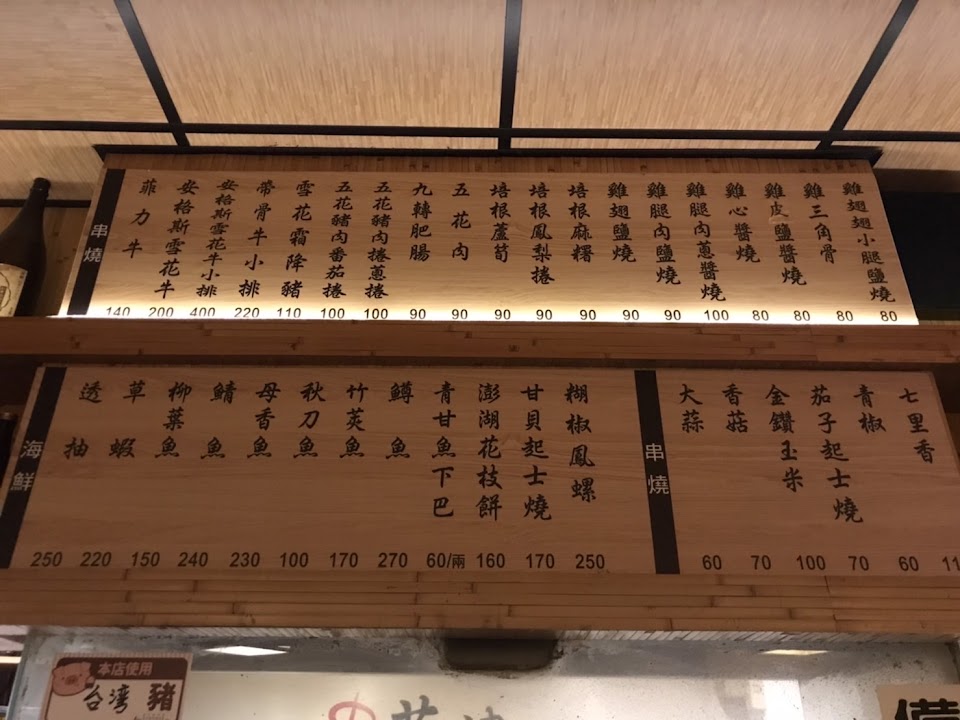 串燒
菲力牛
安格斯雪花牛
安格斯雪花牛小排
帶骨牛小排
雪花霜降豬
五花豬肉番茄捲
五花豬肉蔥捲
九轉肥腸
五花肉
培根蘆筍
培根鳳梨捲
培根麻糬
雞翅鹽燒
雞腿肉鹽燒
雞腿肉蔥醬燒
雞心醬燒
雞皮鹽醬燒
雞三角骨
雞翅翅小腿鹽燒
140 200 400 220 110 100 100 90 90 90 90 90 90 90 100 80 80 80 80
海鮮
透抽
草蝦
柳葉魚
鯖魚
母香魚
秋刀魚
竹莢魚
鱒魚
青甘魚下巴
澎湖花枝餅
甘貝起士燒
糊椒鳳螺
250 220 150 240 230 100 170 270 60/兩 160 170 250
串燒
大蒜
香菇
金鑽玉米
茄子起士燒
青椒
七里香
60 70 100 70 60 11
本店使用
台湾豬